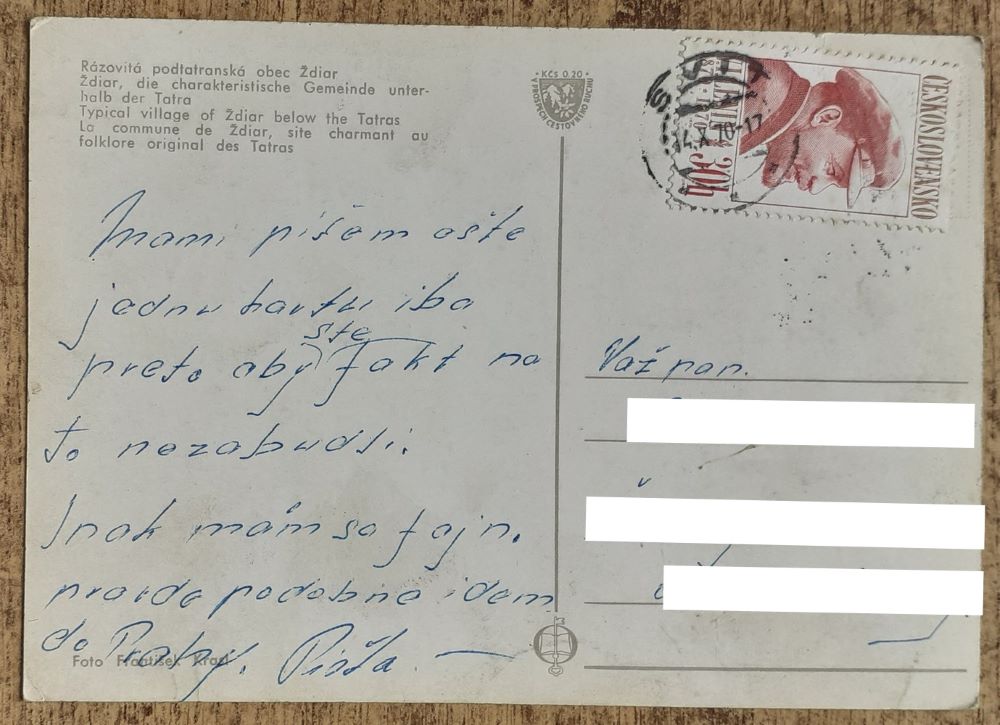 Rázovitá podtatranská obec Ždiar
Ždiar, die charakteristische Gemeinde unter-
halb der Tatra
Typical village of Ždiar below the Tatras
La commune de Ždiar, site charmant au
folklore original des Tatras
KČs 0,20
V PROSPECH CESTOVNÉHO RUCHU
ČESKOSLOVENSKO
30h
SVIT
14.X.70-17
Mami píšem ešte
jednu kartu iba
preto aby ste fakt na
to nezabudli.
Inak mám sa fajn.
pravde podobne idem
do Prahy. Pišta.
Foto František Krasl
Váž pan.